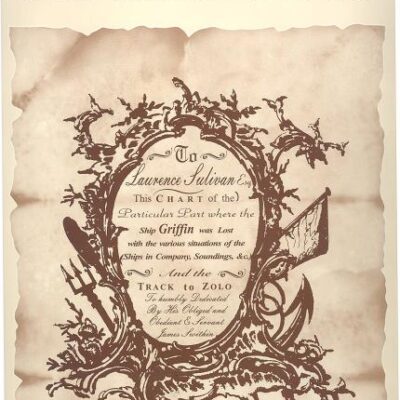 To
Laurence Sulivan Esq
This CHART of the
Particular Part where the
Ship Griffin was Lost
with the various situations of the
(Ships in Company, Soundings, &c.)
And the
TRACK to ZOLO
To humbly Dedicated
By His Obliged and
Obedient & Servant
James Swithin